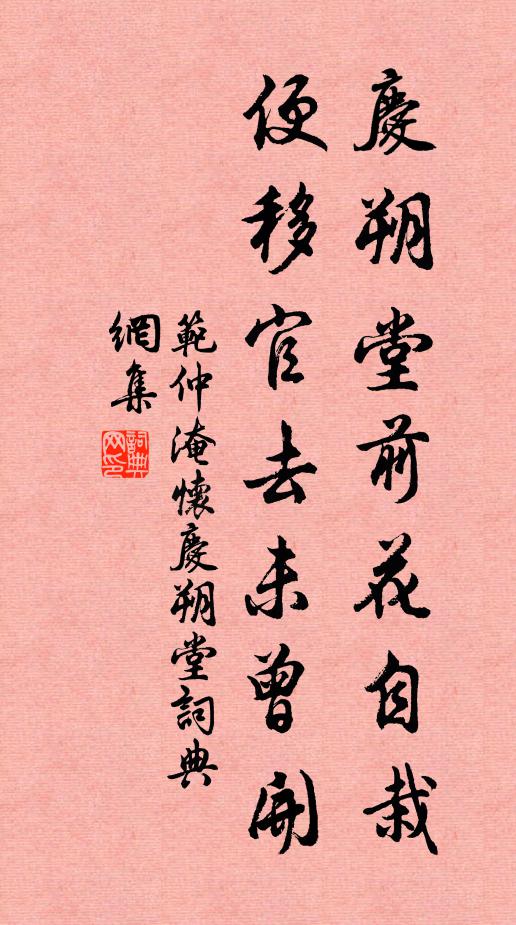 慶朔堂前花自栽
便移官去未曾開
範仲淹懷慶朔堂詞典
網集
詞典
網印